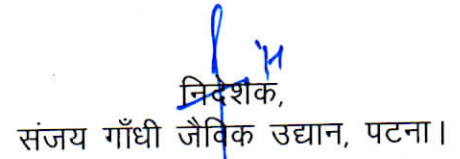 निदेशक,
संजय गाँधी जैविक उद्यान, पटना।